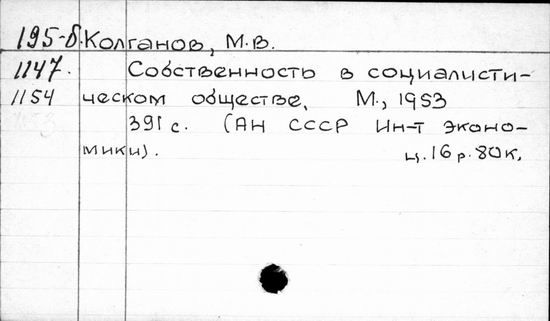 195-б. Колганов, М.В.
1147. Собственность в социалисти-
1154 ческом обществе. М., 1953
391 с. (АН СССР Ин-т эконо-
мики). ц. 16 р. 80 к.